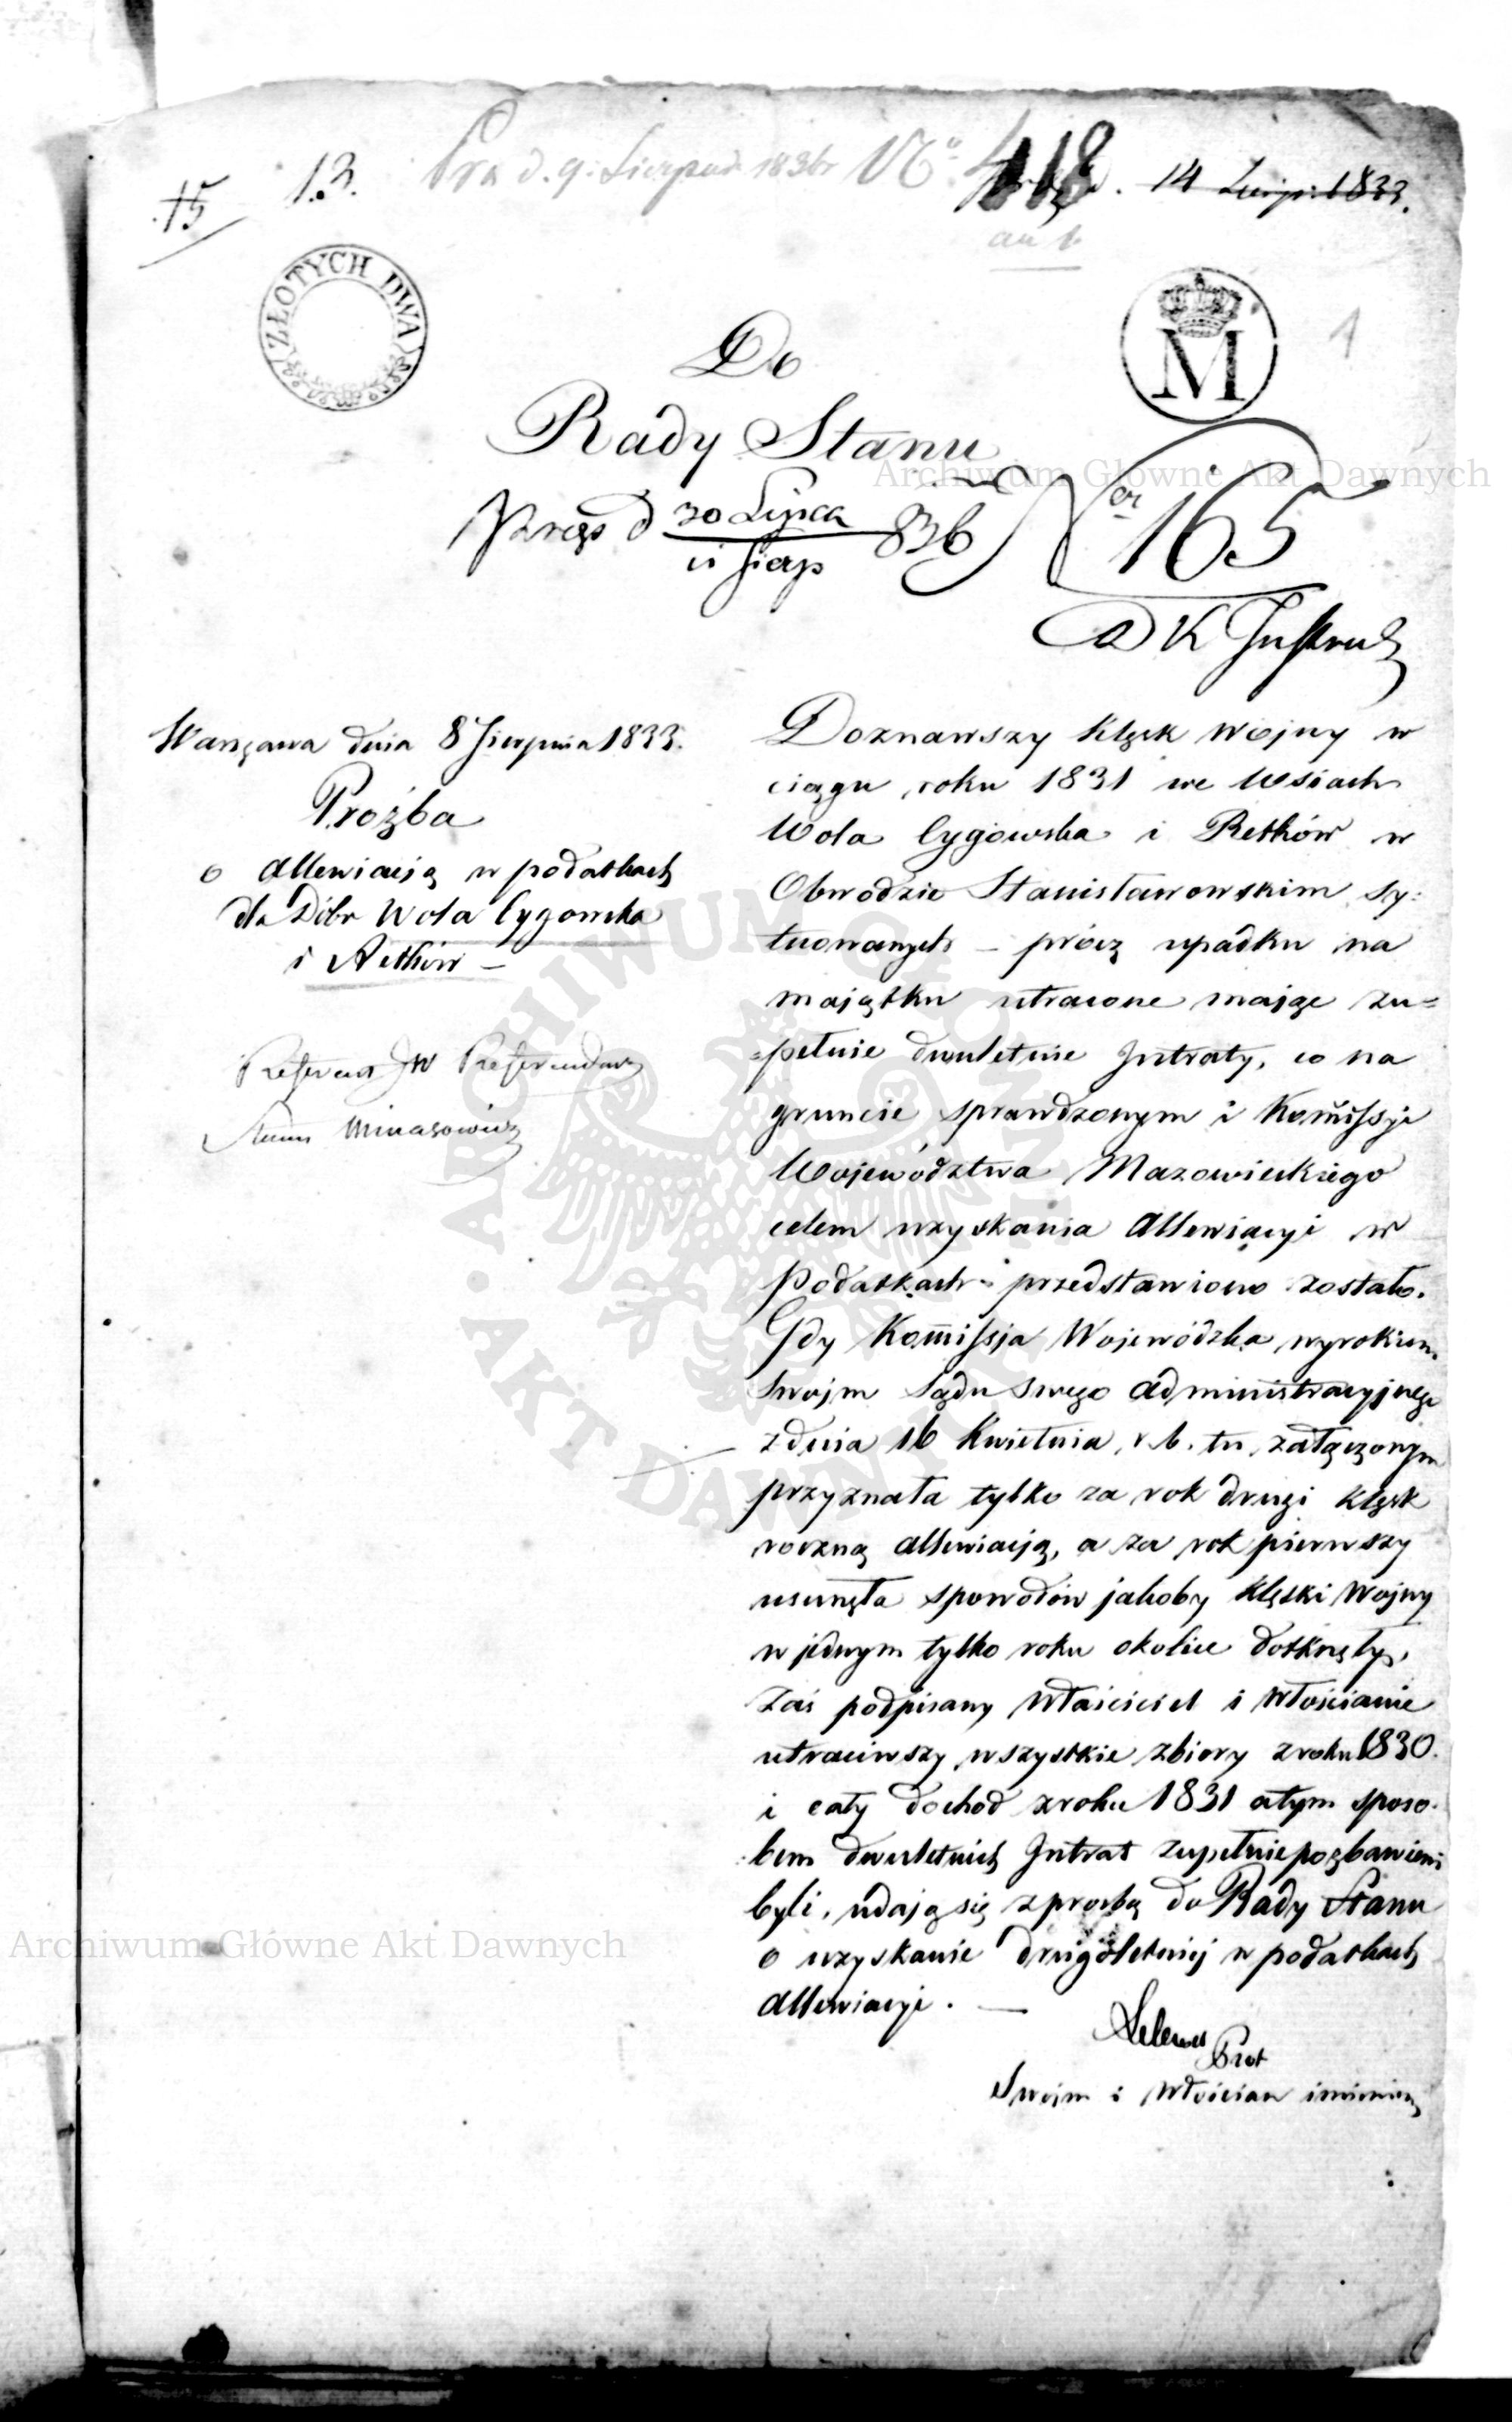 15
13.
Pra d. 9. Sierpnia 1836 No. 118
d. 14 Sierp: 1833.
ZŁOTYCH DWA
M
1
Do
Rady Stanu
Archiwum Główne Akt Dawnych
Nr 165
Lipca
Sierp 836
D K Instruk
Warszawa dnia 8 Sierpnia 1833.
Proźba
o allewiacją w podatkach
dla Dóbr Wola Cygowska
i Retków –
Referent JW Referendarz
Stanu Minasowicz
Doznawszy klęsk wojny w
ciągu roku 1831 we Wsiach
Wola Cygowska i Retków w
Obwodzie Stanisławowskim sy:
tuowanych – prócz upadku na
majątku utracone mając zu=
=pełnie dwuletnie Intraty, co na
gruncie sprawdzonym i Kommissji
Województwa Mazowieckiego
celem uzyskania Allewiacyi w
Podatkach przedstawiono zostało.
Gdy Kommissja Wojewódzka wyrokiem
swojm Sądu swego administracyjnego
z dnia 16 Kwietnia r. b. tu załączonym
przyznała tylko za rok drugi klęsk
roczną allewiacją, a za rok pierwszy
usunęła spowodów jakoby klęski wojny
w jednym tylko roku okolice dotknęły,
Zaś podpisany właściciel i Włościanie
utraciwszy wszystkie zbiory z roku 1830.
i cały dochod z roku 1831 a tym sposo:
:bem dwuletnich Intrat zupełnie pozbawieni
byli, udają się z proźbą do Rady Stanu
o uzyskanie drugoletniej w podatkach
allewiacyi. —
Prot
Swojm i Włościan imieniem
ARCHIWUM GŁÓWNE AKT DAWNYCH
Archiwum Główne Akt Dawnych